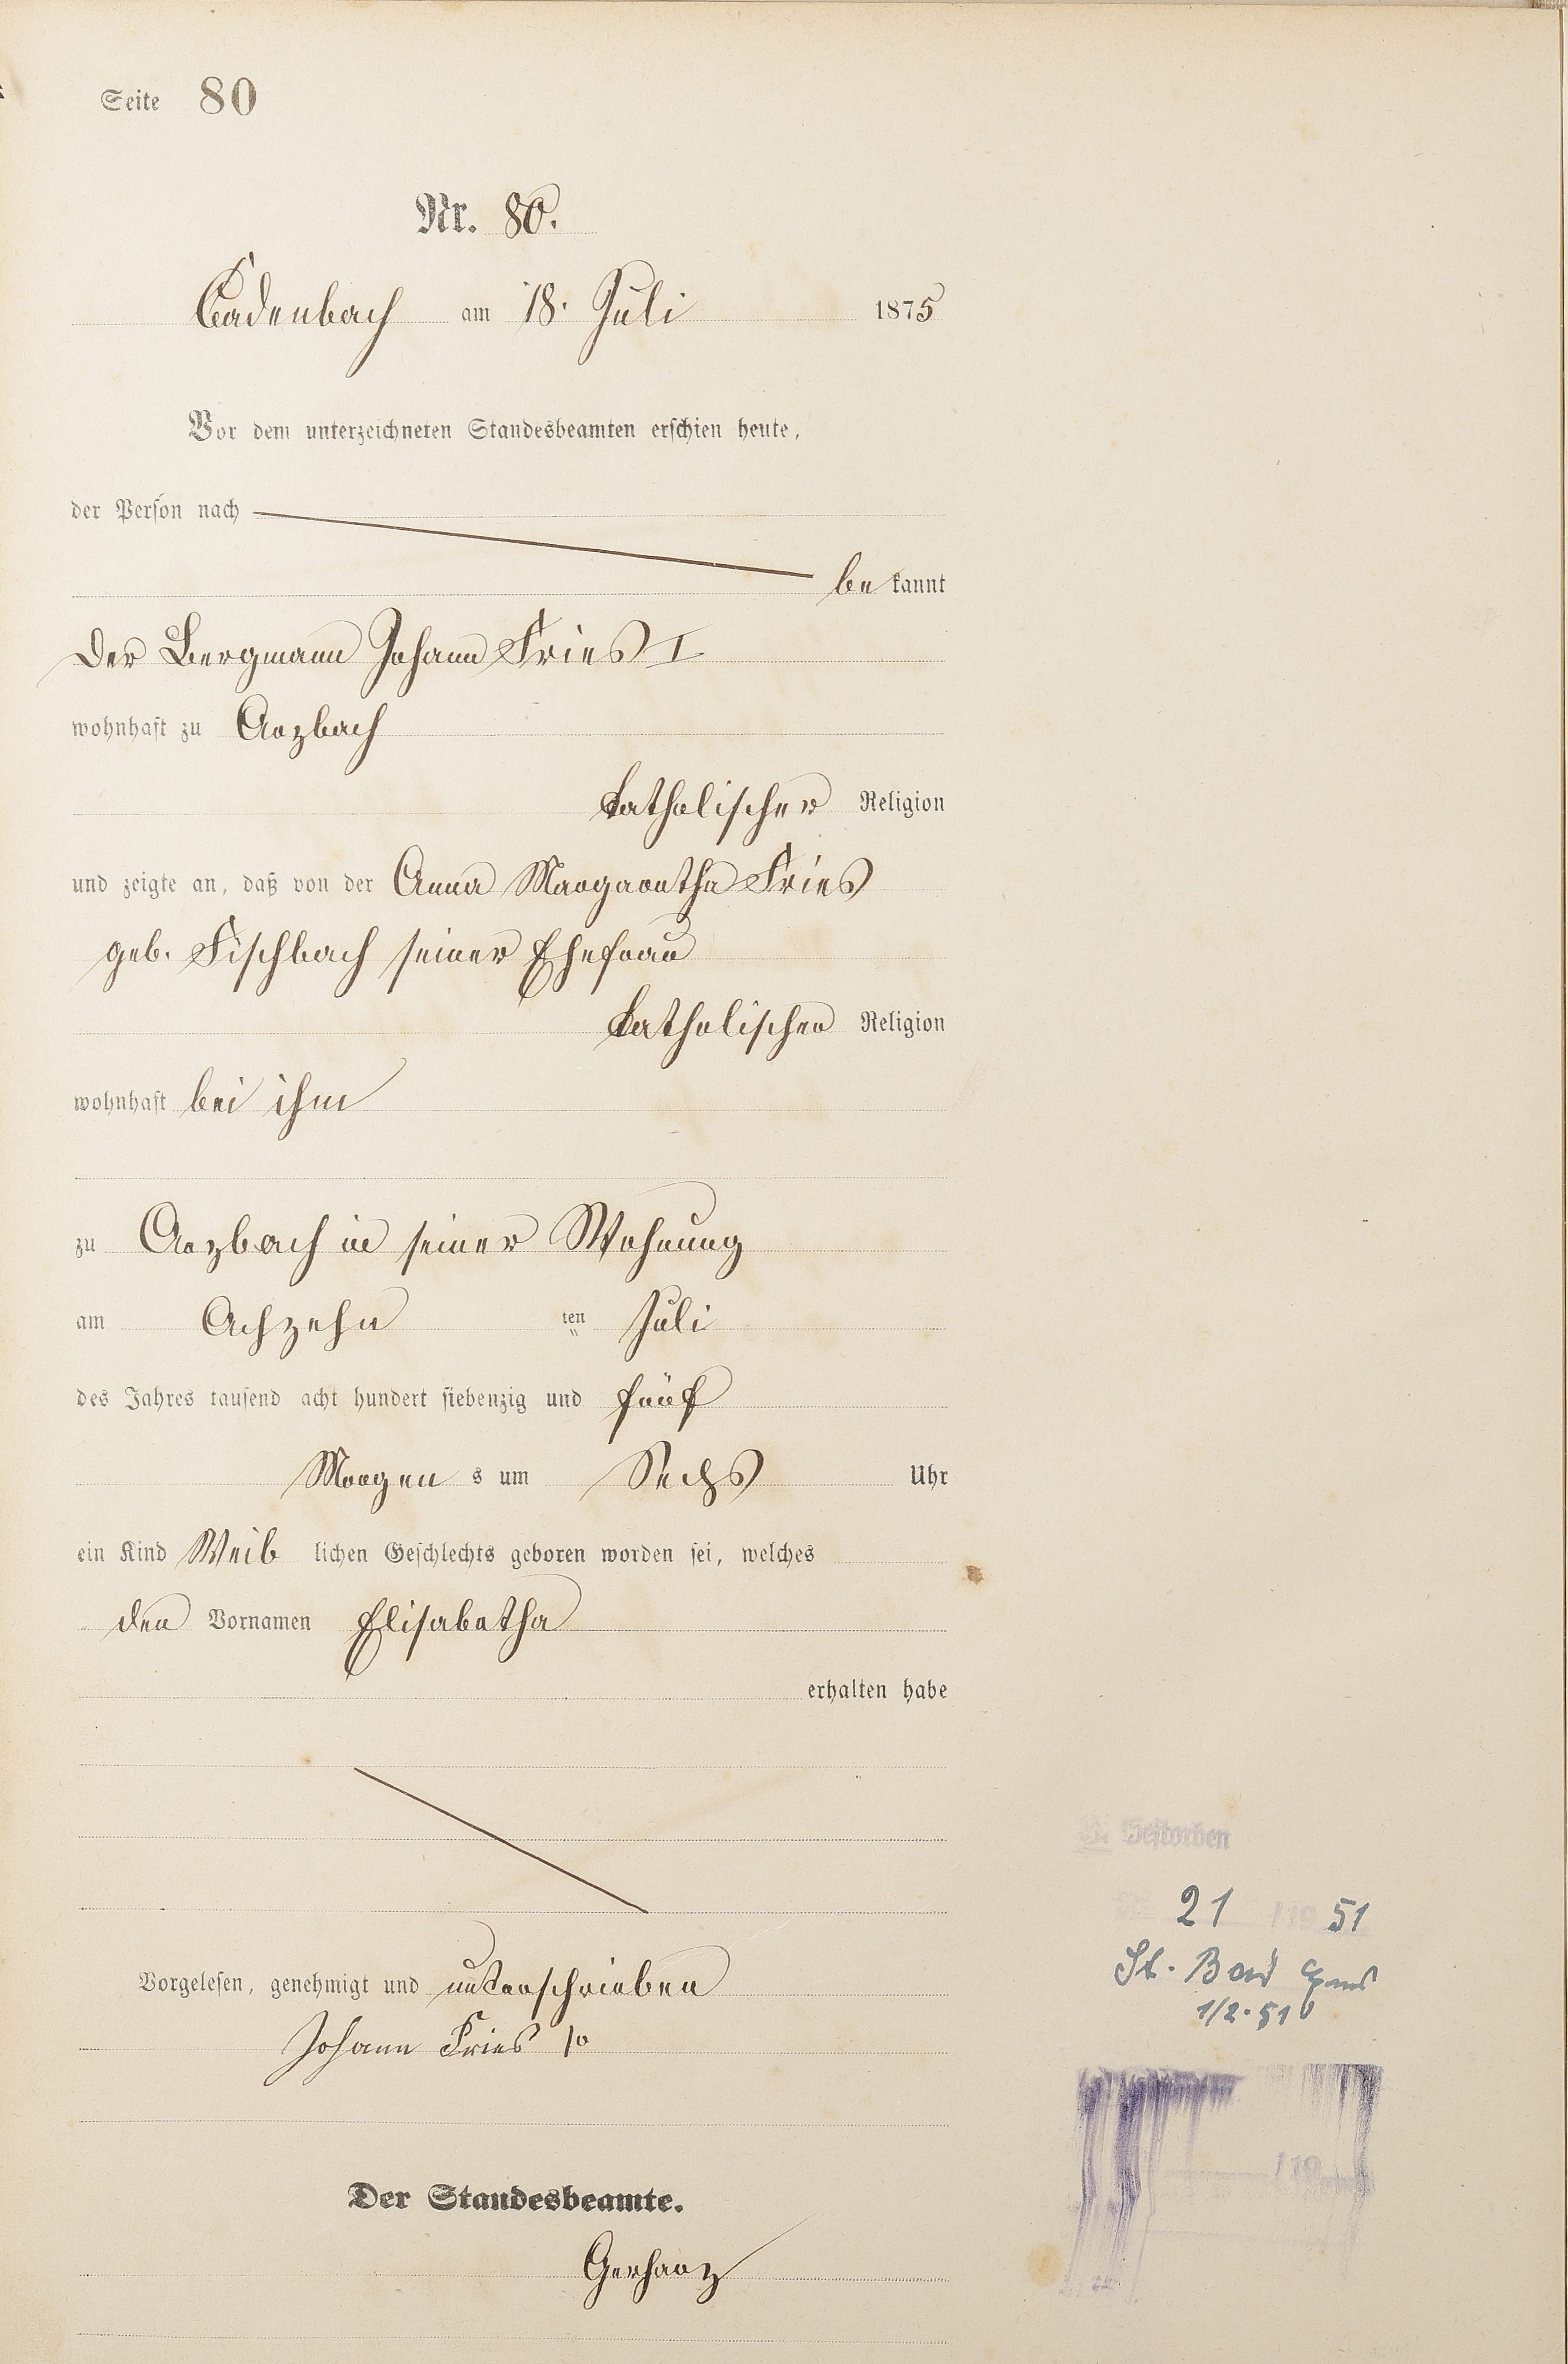 Seite 80
Nr. 80.
Cadenbach am 18. Juli 1875
Vor dem unterzeichneten Standesbeamten erschien heute,
der Person nach
be kannt
Der Bergmann Johann Fries I
wohnhaft zu Arzbach
katholischer Religion
und zeigte an, daß von der Anna Margaretha Fries
geb. Fischbach seiner Ehefrau
katholischer Religion
wohnhaft bei ihm
zu Arzbach in seiner Wohnung
am Achzehn ten Juli
des Jahres tausend acht hundert siebenzig und fünf
Morgen s um Sechs Uhr
ein Kind Weib lichen Geschlechts geboren worden sei, welches
den Vornamen Elisabetha
erhalten habe
Vorgelesen, genehmigt und unterschrieben
Johann Fries
Der Standesbeamte.
Gerharz
Gestorben
21 /19 51
St. Bad Ems
1/2.51
/19